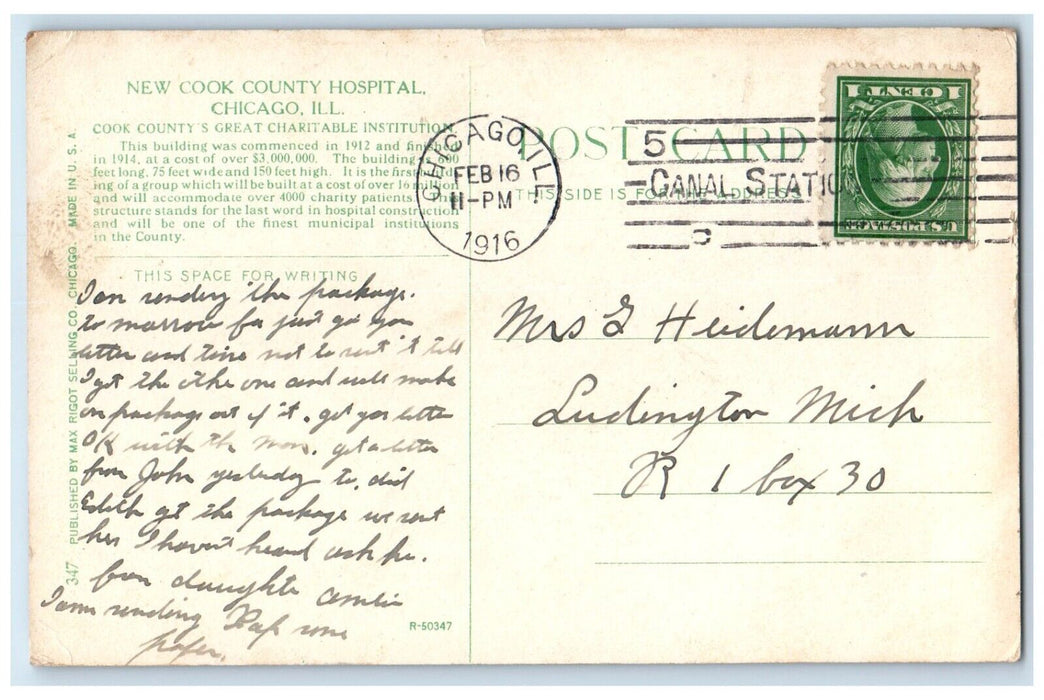 NEW COOK COUNTY HOSPITAL,
CHICAGO, ILL.
COOK COUNTY'S GREAT CHARITABLE INSTITUTION
This building was commenced in 1912 and finished
in 1914, at a cost of over $3,000,000. The building is 600
feet long, 75 feet wide and 150 feet high. It is the first build-
ing of a group which will be built at a cost of over 16 million
and will accommodate over 4000 charity patients. This
structure stands for the last word in hospital construction
and will be one of the finest municipal institutions
in the County.
THIS SPACE FOR WRITING
I am sending the package.
to morrow for just got you
letter and time not to sent it till
I got the othe one and will make
on package out of it. got you letter
OK with the mon. got a letter
from John yesterday to. did
Edith get the package we sent
her I havent heard ask he.
from daughte
I am sending some
paper.
347 PUBLISHED BY MAX RIGOT SELLING CO., CHICAGO. MADE IN U. S. A.
R-50347
POST CARD
THIS SIDE IS FOR THE ADDRESS
CHICAGO, ILL.
FEB 16
11-PM
1916
5
CANAL STATIO
U.S. POSTAGE
1 CENT 1
Mrs Heidemann
Ludington Mich
R 1 box 30